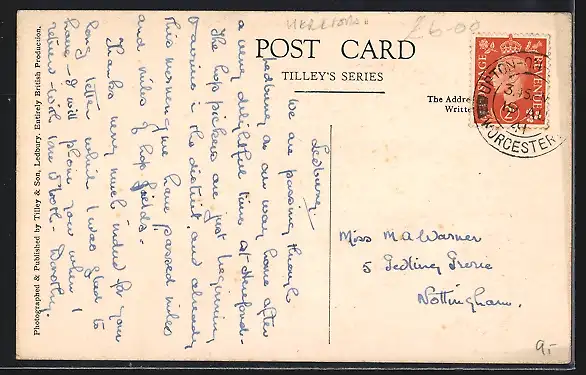 HEREFORD.
£6-00
POST CARD
TILLEY'S SERIES
The Addre
Writte
Photographed & Published by Tilley & Son, Ledbury, Entirely British Production.
Ledbury.
We are passing through
Ledbury on our way home after
a very delightful time at Hereford.
The hop pickers are just beginning
to arrive in the district and already
this morning we have passed miles
and miles of hop fields.
Thanks very much indeed for your
long letter which I was glad to
have. I will phone you when I
return. With love to both. Dorothy.
Miss M A Warner
5 Gedling Grove
Nottingham.
POSTAGE
REVENUE
UPTON-
3.15
WORCESTER
9,-